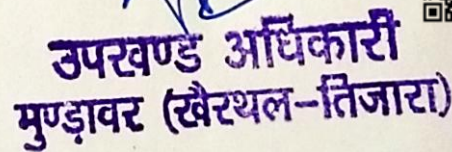 उपखण्ड अधिकारी
मुण्ड़ावर (खैरथल-तिजारा)